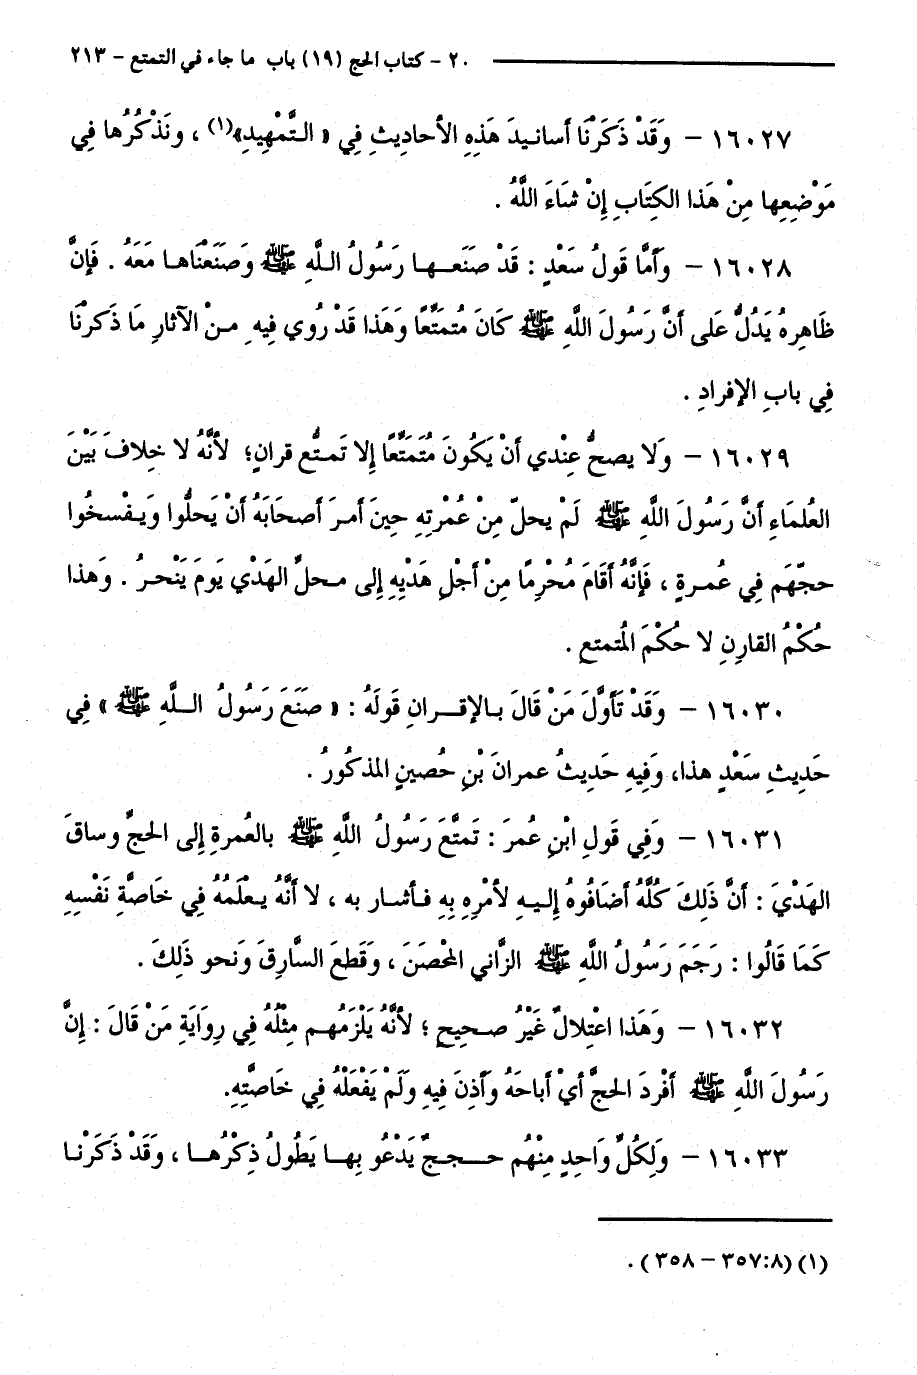 ٢٠ - كتاب الحج (١٩) باب ما جاء في التمتع - ٢١٣
١٦٠٢٧ - وَقَدْ ذَكَرْنَا أسانيدَ هَذِهِ الأحاديثِ فِي « التَّمْهِيدِ»(١) ، ونَذْكُرُها فِي
مَوْضِعِها مِنْ هَذا الكِتَابِ إِنْ شَاءَ اللَّهُ .
١٦٠٢٨ - وَأَمَّا قَولُ سَعْدٍ : قَدْ صَنَعَها رَسُولُ اللَّهِ ﷺ وَصَنَعْنَاها مَعَهُ . فَإِنَّ
ظَاهِرهُ يَدُلُّ عَلى أَنَّ رَسُولَ اللَّهِ ﷺ كَانَ مُتمَتِّعًا وَهَذا قَدْ رُوي فِيهِ مِنْ الآثارِ مَا ذَكرْنَا
فِي بابِ الإفرادِ .
١٦٠٢٩ - وَلا يصحُّ عِنْدي أَنْ يَكُونَ مُتَمَتِّعًا إِلا تَمتُّع قرانٍ؛ لأَنَّهُ لا خلافَ بَيْنَ
العُلمَاءِ أَنَّ رَسُولَ اللَّهِ ﷺ لَمْ يحلّ مِنْ عُمْرتِهِ حِينَ أمرَ أَصحَابَهُ أَنْ يَحلُّوا وَيَفْسخُوا
حجّهَم فِي عُمرةٍ ، فَإِنَّهُ أَقَامَ مُحْرِمًا مِنْ أَجْلِ هَدْيِهِ إِلى محلِّ الهَدْي يَومَ يَنْحرُ . وَهذا
حُكْمُ القارِنِ لا حُكْمَ المُتمتعِ .
١٦٠٣٠ - وَقَدْ تَأَوَّلَ مَنْ قَالَ بالإقرانِ قَولَهُ : « صنَعَ رَسُولُ اللَّهِ ﷺ » فِي
حَدِيثِ سَعْدٍ هذا، وَفِيهِ حَدِيثُ عمرانَ بْنِ حُصينٍ المذكُورُ .
١٦٠٣١ - وَفِي قَولِ ابْنِ عُمرَ : تَمتَّعَ رَسُولُ اللَّهِ ﷺ بالعُمرةِ إِلى الحَجِّ وساقَ
الهَدْيَ : أَنَّ ذَلِكَ كُلَّهُ أَضَافُوهُ إِليهِ لأَمْرِهِ بِهِ فأشار به ، لا أَنَّهُ يعلَمُهُ فِي خَاصَّةِ نَفْسِهِ
كَمَا قَالُوا : رَجَمَ رَسُولُ اللَّهِ ﷺ الزَّاني المحْصَنَ ، وَقَطعَ السَّارِقَ وَنحو ذَلِكَ .
١٦٠٣٢ - وَهَذا اعْتِلالٌ غَيْرُ صحيحٍ ؛ لأَنَّهُ يَلْزَمُهم مِثْلُهُ فِي رِوَايَةِ مَنْ قَالَ : إِنَّ
رَسُولَ اللَّهِ ﷺ أفْردَ الحجَّ أَيْ أباحَهُ وَأَذِنَ فِيهِ وَلَمْ يَفْعَلْهُ فِي خَاصَّتِهِ.
١٦٠٣٣ - وَلِكُلِّ وَاحِدٍ مِنْهُم حججٌ يَدْعُو بِها يَطُولُ ذِكْرُها ، وَقَدْ ذَكَرْنا
(١) (٨:٣٥٧ - ٣٥٨) .